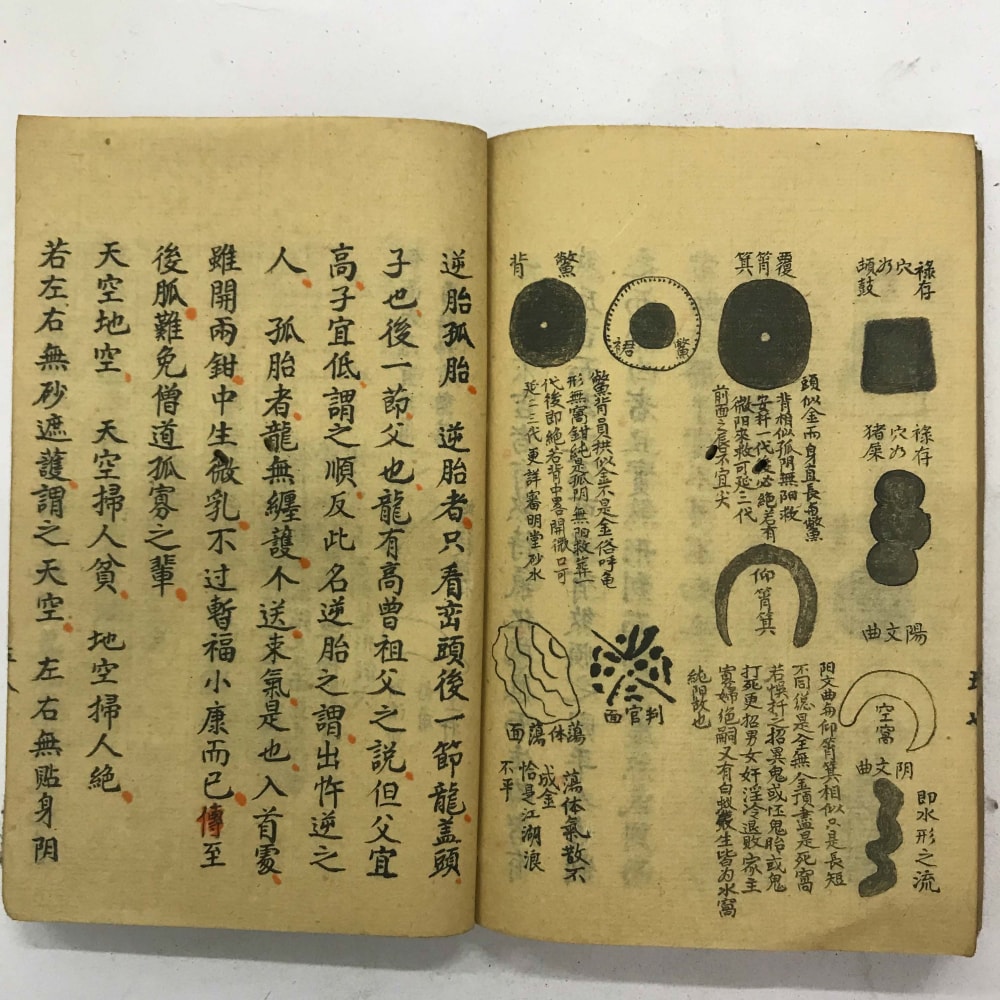 祿存
穴乃
頑鼓
祿存
穴乃
猪屎
陽文曲
空窩
阴文曲
即水形之流
覆箵箕
頭似金而身直長与鱉
背相似孤阴無阳救
安扦一代必絕若有
微阳來救可延三代
前面之唇不宜尖
仰箵箕
阳文曲与仰箵箕相似只是長短
不同総是全無金頂盡是死窩
若悞扦之招異鬼或怪鬼胎或鬼
打死更招男女奸淫冷退敗家主
寡婦絕嗣又有白蟻叢生皆为水窩
純阴故也
鱉裙
鱉背
鱉背員拱似金不是金俗呼龟
形無窩鉗純是孤阴無阳救葬一
代後即絕若背中畧開微口可
延二三代更詳審明堂砂水
判官面
蕩体蕩面
蕩体氣散不
成金
恰是江湖浪
不平
逆胎孤胎 逆胎者只看峦頭後一節龍盖頭
子也後一節父也龍有高曾祖父之説但父宜
高子宜低謂之順反此名逆胎之謂出忤逆之
人 孤胎者龍無纏護不送束氣是也入首處
雖開兩鉗中生微乳不过暫福小康而已傳至
後胍難免僧道孤寡之輩
天空地空 天空掃人貧 地空掃人絕
若左右無砂遮護謂之天空 左右無貼身阴